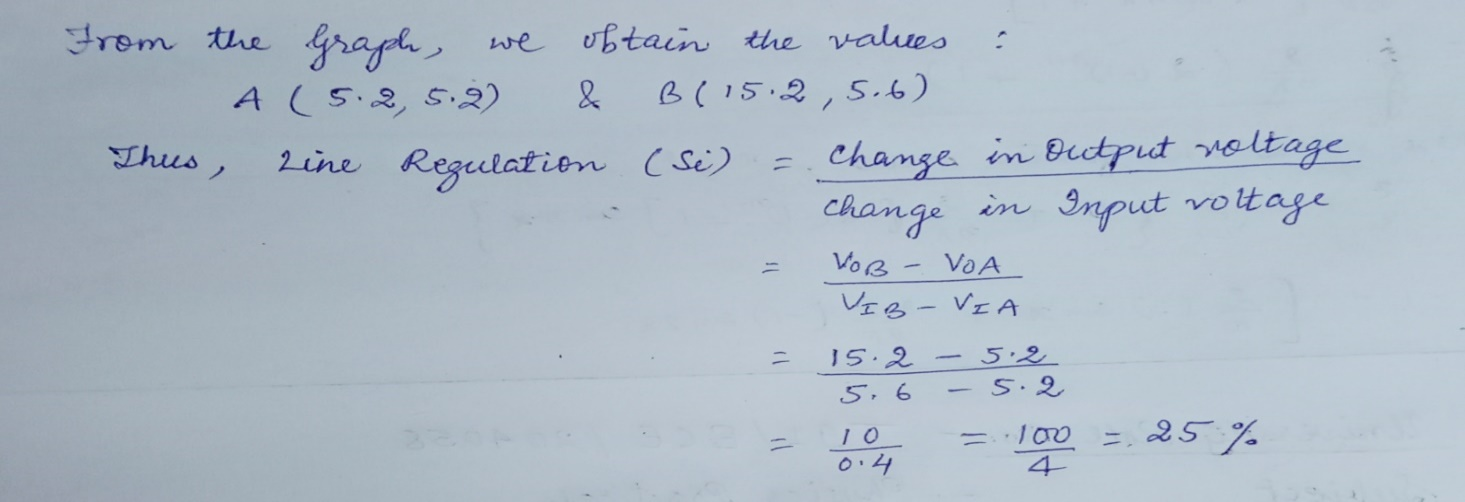 From the Graph, we obtain the values :
A ( 5.2, 5.2) & B ( 15.2 , 5.6)
Thus, Line Regulation (Si) = Change in Output voltage
change in Input voltage
= VOB - VOA
VIB - VIA
= 15.2 - 5.2
5.6 - 5.2
= 10 = 100 = 25 %
0.4 4